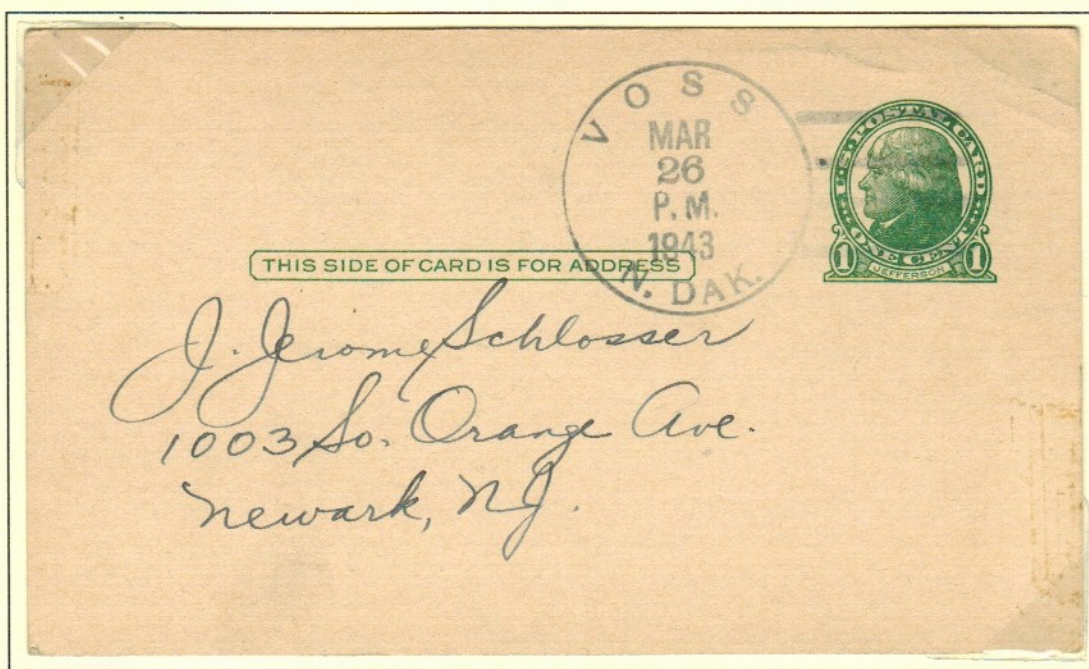 VOSS
MAR
26
P.M.
1943
N. DAK.
U.S. POSTAL CARD
ONE CENT
1 JEFFERSON 1
THIS SIDE OF CARD IS FOR ADDRESS
J. Jerome Schlosser
1003 So. Orange Ave.
Newark, NJ.